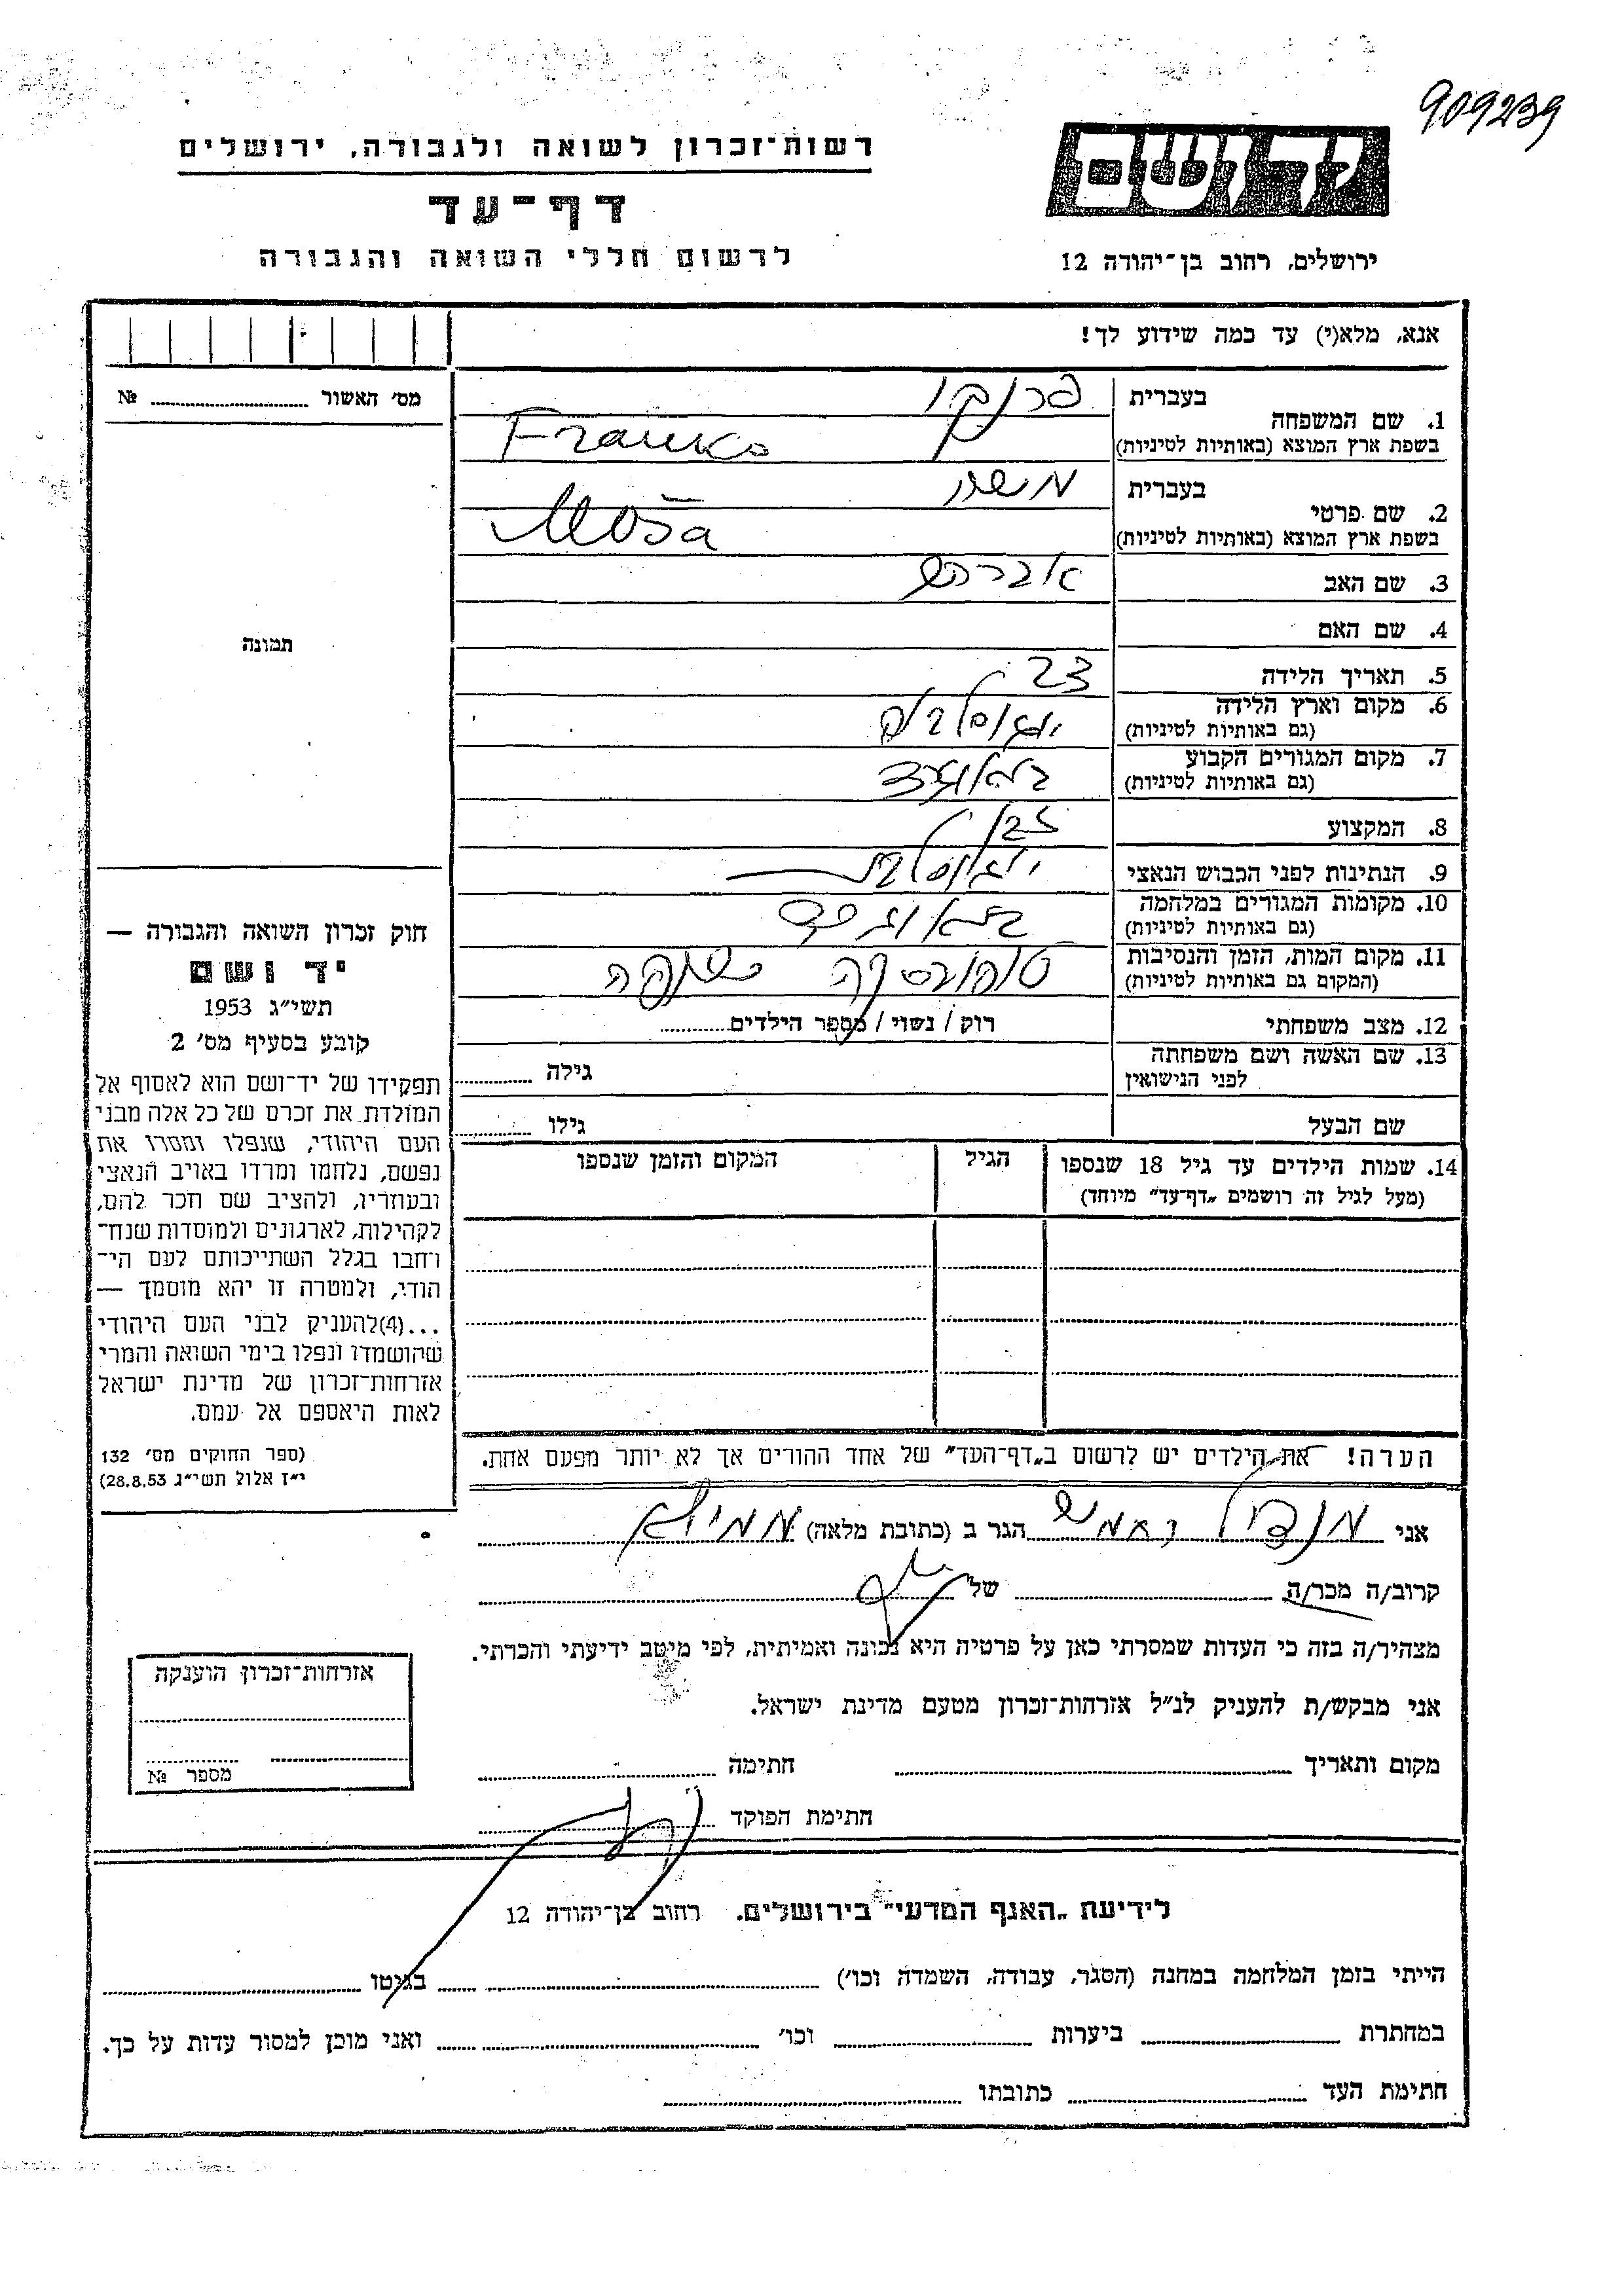 909239
רשות־זכרון לשואה ולגבורה, ירושלים
יד ושם
דף־עד
לרשום חללי השואה והגבורה
ירושלים, רחוב בן־יהודה 12
אנא, מלא(י) עד כמה שידוע לך!
מס׳ האשור № 
1. שם המשפחה
בעברית פרנקו
בשפת ארץ המוצא (באותיות לטיניות) Franko
2. שם פרטי
בעברית משה
בשפת ארץ המוצא (באותיות לטיניות) Moša
3. שם האב אברהם
4. שם האם
5. תאריך הלידה 23
6. מקום וארץ הלידה
(גם באותיות לטיניות) יוגוסלביה
7. מקום המגורים הקבוע
(גם באותיות לטיניות) בלאוגרד
8. המקצוע
9. הנתינות לפני הכבוש הנאצי יוגוסלבית
10. מקומות המגורים במלחמה
(גם באותיות לטיניות) בלאוגרד
11. מקום המות, הזמן והנסיבות
(המקום גם באותיות לטיניות)
12. מצב משפחתי רוק / נשוי / מספר הילדים
13. שם האשה ושם משפחתה
לפני הנישואין גילה
שם הבעל גילו
14. שמות הילדים עד גיל 18 שנספו
(מעל לגיל זה רושמים „דף־עד״ מיוחד)
הגיל
המקום והזמן שנספו
תמונה
חוק זכרון השואה והגבורה —
יד ושם
תשי״ג 1953
קובע בסעיף מס׳ 2
תפקידו של יד־ושם הוא לאסוף אל
המולדת את זכרם של כל אלה מבני
העם היהודי, שנפלו ומסרו את
נפשם, נלחמו ומרדו באויב הנאצי
ובעוזריו, ולהציב שם וזכר להם,
לקהילות, לארגונים ולמוסדות שנח־
רחבו בגלל השתייכותם לעם הי־
הודי, ולמטרה זו יהא מוסמך —
...(4)להעניק לבני העם היהודי
שהושמדו ונפלו בימי השואה והמרי
אזרחות־זכרון של מדינת ישראל
לאות היאספם אל עמם.
(ספר החוקים מס׳ 132
י״ז אלול תשי״ג 28.8.53)
הערה! את הילדים יש לרשום ב„דף־העד״ של אחד ההורים אך לא יותר מפעם אחת.
אני מנדיל הגר ב (כתובת מלאה)
קרוב/ה מכר/ה של
מצהיר/ה בזה כי העדות שמסרתי כאן על פרטיה היא נכונה ואמיתית, לפי מיטב ידיעתי והכרתי.
אני מבקש/ת להעניק לנ״ל אזרחות־זכרון מטעם מדינת ישראל.
מקום ותאריך חתימה
חתימת הפוקד
אזרחות־זכרון הוענקה
מספר №
לידיעת „האגף המדעי״ בירושלים. רחוב בן־יהודה 12
הייתי בזמן המלחמה במחנה (הסגר, עבודה, השמדה וכו׳) בגיטו
במחתרת ביערות וכו׳ ואני מוכן למסור עדות על כך.
חתימת העד כתובתו